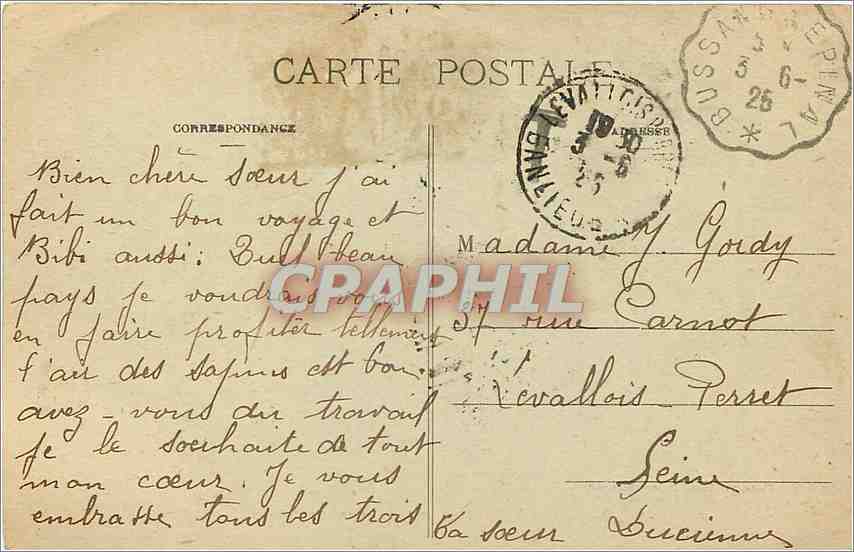 CARTE POSTALE
CORRESPONDANCE
ADRESSE
BUSSAN EPINAL
3 6-
26
LEVALLOIS-PERRET
BANLIEUE
18 30
3 -6
26
Bien chère sœur j'ai
fait un bon voyage et
Bibi aussi: Quel beau
pays je voudrais vous
en faire profiter tellement
l'air des sapins est bon
avez-vous du travail
je le souhaite de tout
mon cœur. Je vous
embrasse tous les trois
Ta sœur Lucienne
Madame Y. Gordy
37 rue Carnot
Levallois-Perret
Seine
CPAPHIL